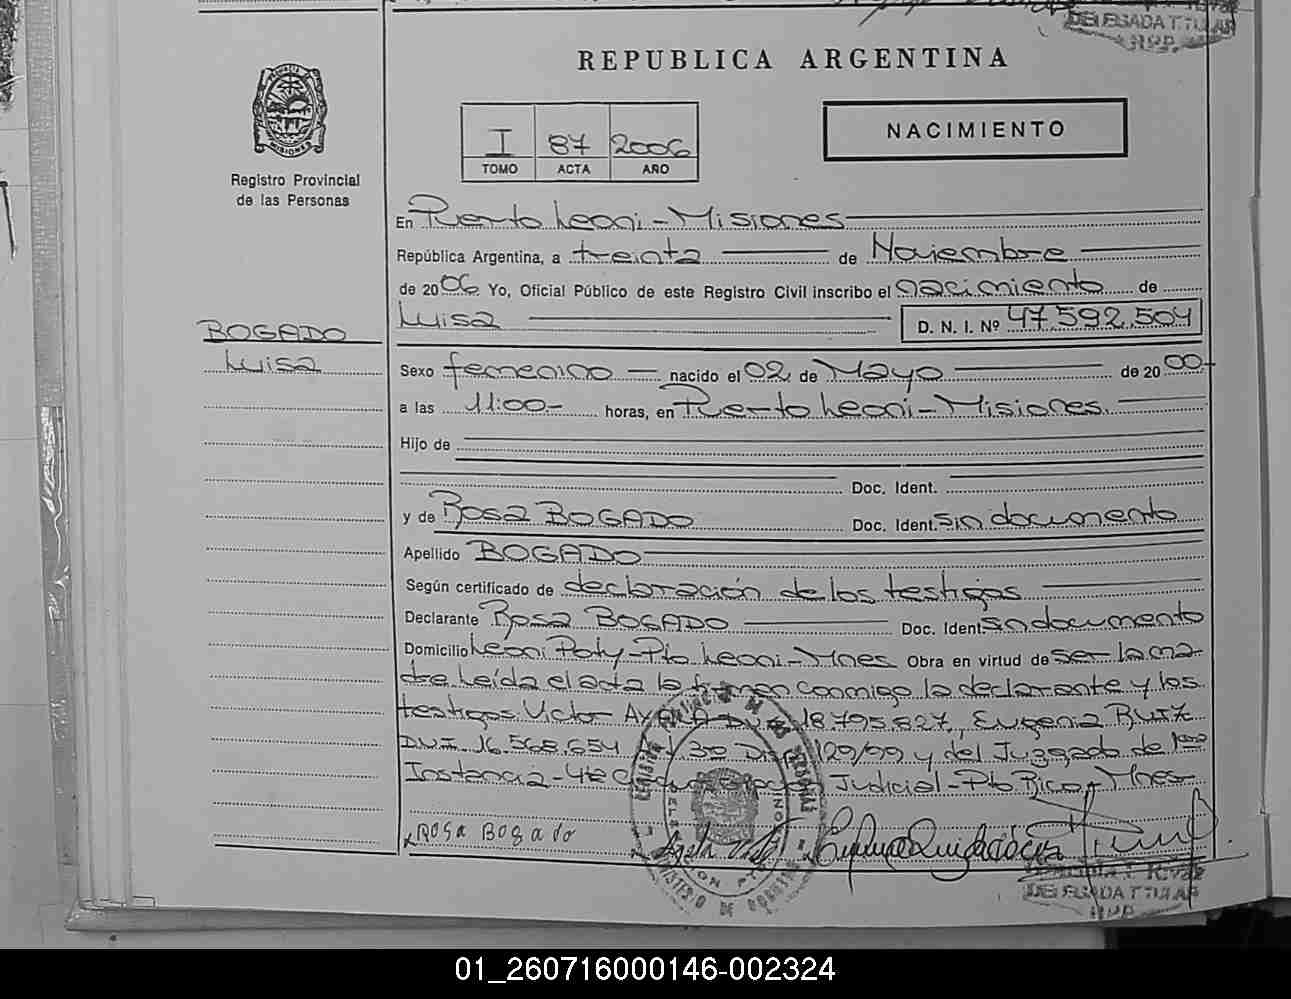 DELEGADA TITULAR
RPP.
REPUBLICA ARGENTINA
MISIONES
Registro Provincial
de las Personas
I 87 2006
TOMO ACTA AÑO
NACIMIENTO
En Puerto Leoni - Misiones
República Argentina, a treinta de Noviembre
de 2006 Yo, Oficial Público de este Registro Civil inscribo el nacimiento de
Luisa D. N. I. Nº 47.592.504
BOGADO
Luisa
Sexo femenino nacido el 02 de Mayo de 2000-
a las 11:00- horas, en Puerto Leoni - Misiones.
Hijo de
Doc. Ident.
y de Rosa BOGADO Doc. Ident. sin documento
Apellido BOGADO
Según certificado de declaración de los testigos
Declarante Rosa BOGADO Doc. Ident. sin documento
Domicilio Leoni Poty - Pto Leoni - Mnes Obra en virtud de ser la ma-
dre Leída el acta la firman conmigo la declarante y los
testigos Victor AYALA D.N.I. 18.795.827, Eugenia RUIZ
D.N.I. 16.568.654 30 129/99 y del Juzgado de 1era
Instancia - 4te Judicial - Pto Rico - Mnes
Rosa Bogado
DELEGADA TITULAR
RPP.
01_260716000146-002324